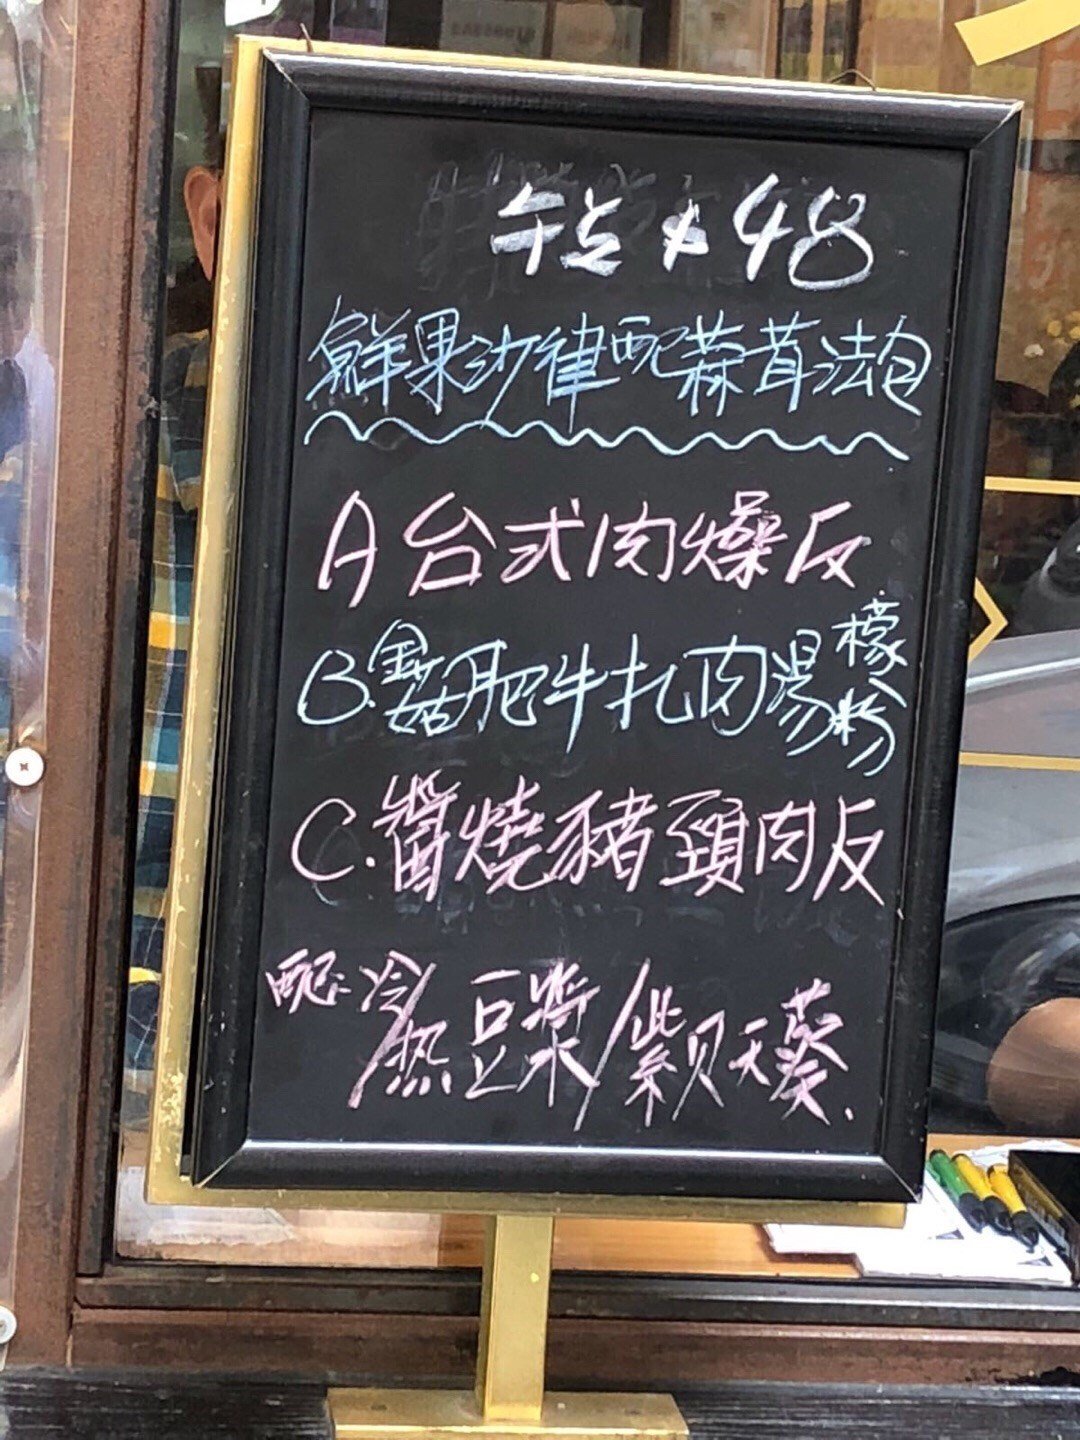 午包 $48
鮮果沙律配蒜茸法包
A 台式肉燥反
B.金菇肥牛扎肉湯檬粉
C.醬燒豬頸肉反
配:冷/热豆漿/紫貝天葵.